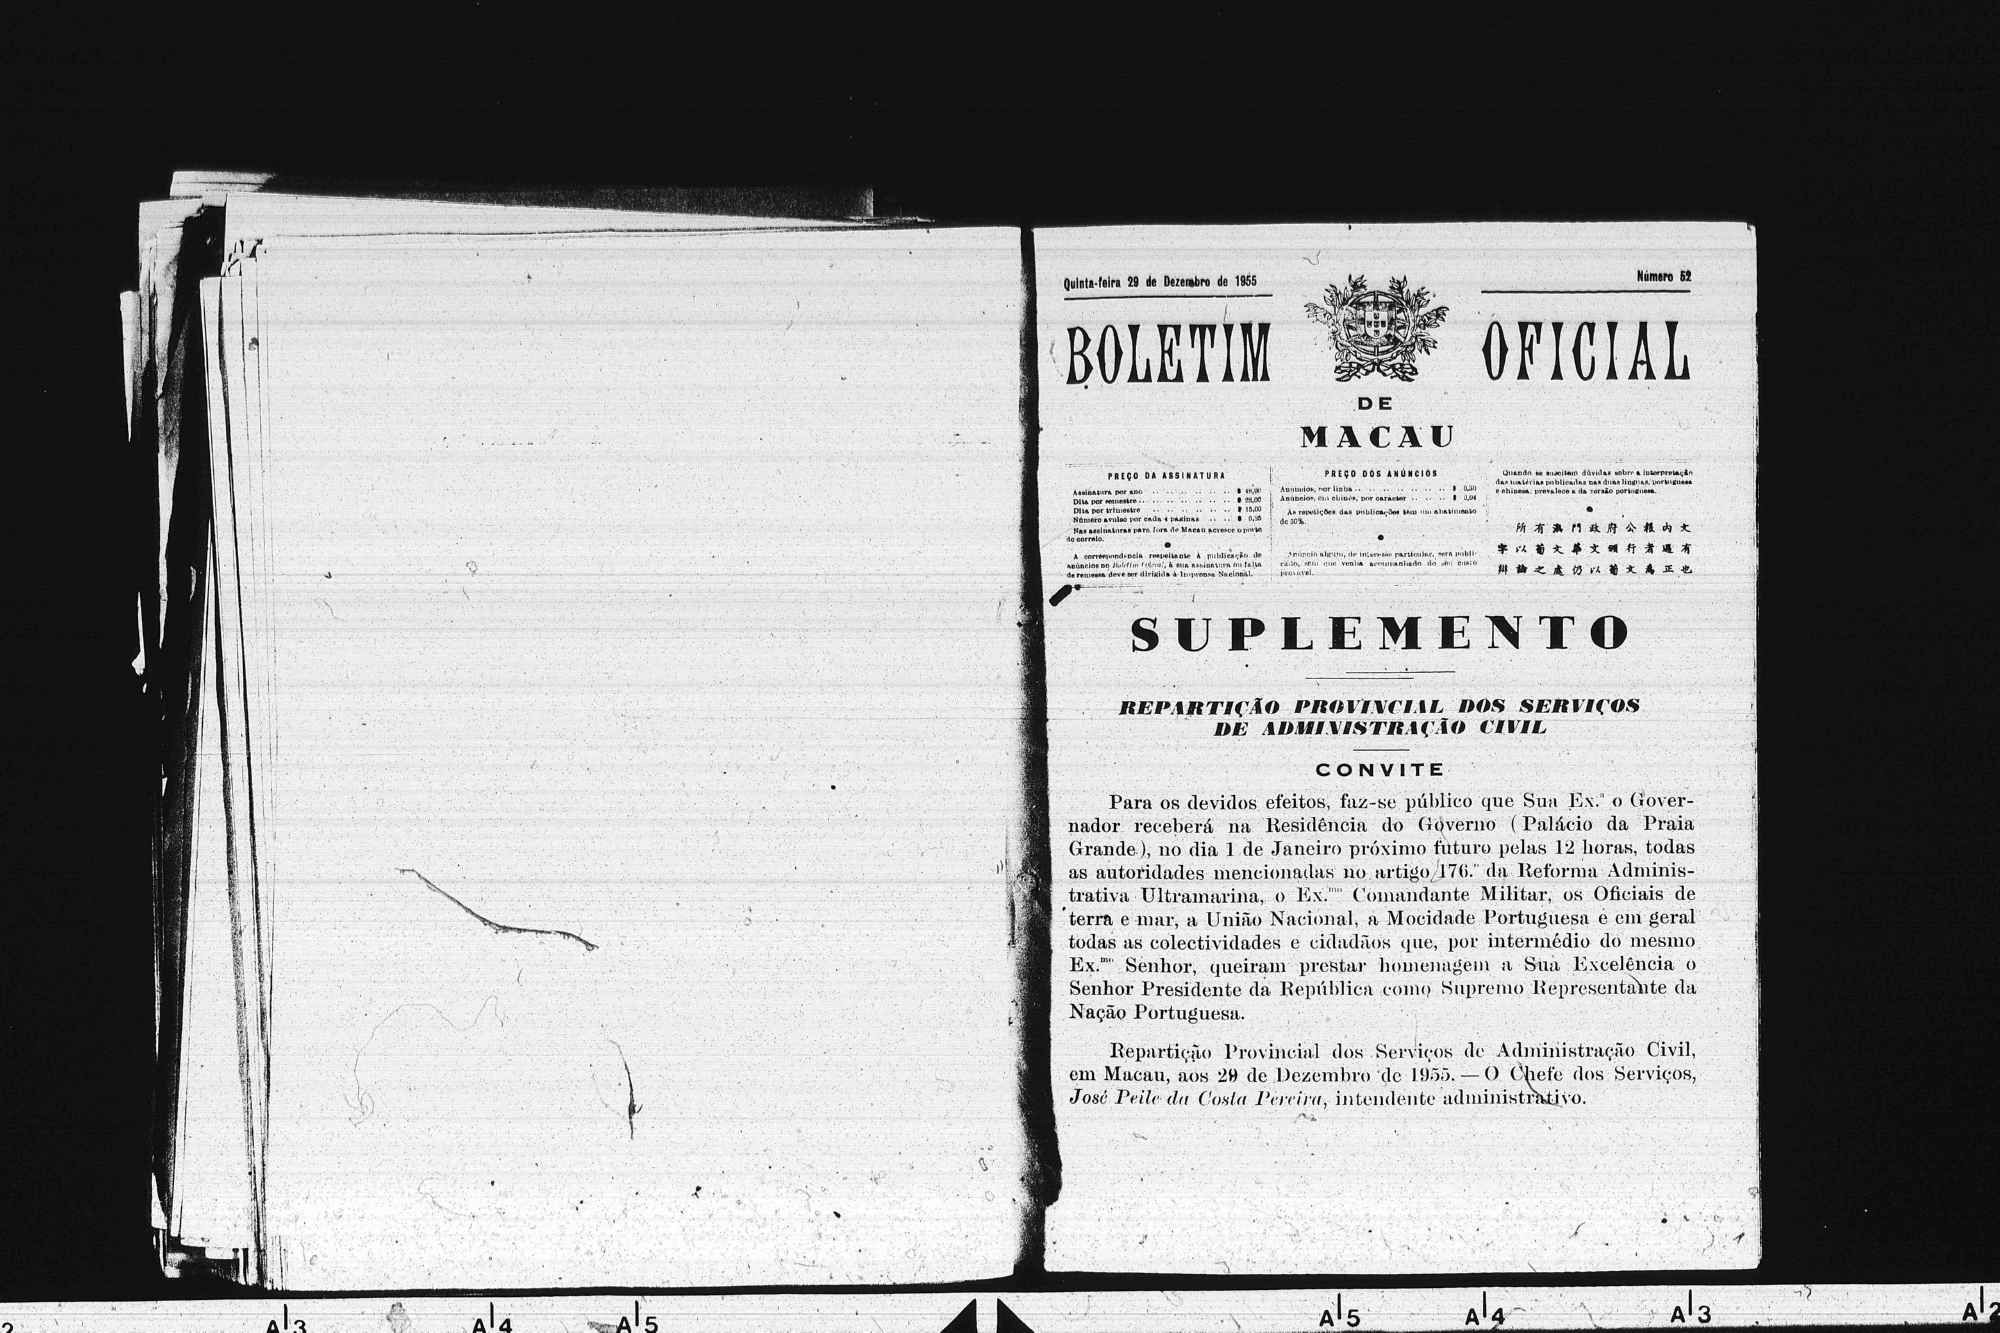 Quinta-feira 29 de Dezembro de 1955
Número 52
BOLETIM OFICIAL
DE
MACAU
PREÇO DA ASSINATURA
Assinatura por ano $ 48,00
Dita por semestre $ 28,00
Dita por trimestre $ 15,00
Número avulso por cada 4 páginas $ 0,35
Nas assinaturas para fora de Macau acresce o porte
do correio.
A correspondência respeitante à publicação de
anúncios no Boletim Oficial, à sua assinatura ou falta
de remessa deve ser dirigida à Imprensa Nacional.
PREÇO DOS ANÚNCIOS
Anúncios, por linha $ 0,30
Anúncios, em chinês, por carácter $ 0,04
As repetições das publicações têm um abatimento
de 50%.
Anúncio algum, de interesse particular, será publi-
cado, sem que venha acompanhado do seu custo
provável.
Quando se suscitem dúvidas sobre a interpretação
das matérias publicadas nas duas línguas, portuguesa
e chinesa, prevalece a da versão portuguesa.
所有澳門政府公報內文
字以葡文華文頒行者遇有
辯論之處仍以葡文爲正也
SUPLEMENTO
REPARTIÇÃO PROVINCIAL DOS SERVIÇOS
DE ADMINISTRAÇÃO CIVIL
CONVITE
Para os devidos efeitos, faz-se público que Sua Ex.ª o Gover-
nador receberá na Residência do Governo (Palácio da Praia
Grande), no dia 1 de Janeiro próximo futuro pelas 12 horas, todas
as autoridades mencionadas no artigo 176.º da Reforma Adminis-
trativa Ultramarina, o Ex.mo Comandante Militar, os Oficiais de
terra e mar, a União Nacional, a Mocidade Portuguesa e em geral
todas as colectividades e cidadãos que, por intermédio do mesmo
Ex.mo Senhor, queiram prestar homenagem a Sua Excelência o
Senhor Presidente da República como Supremo Representante da
Nação Portuguesa.
Repartição Provincial dos Serviços de Administração Civil,
em Macau, aos 29 de Dezembro de 1955. — O Chefe dos Serviços,
José Peile da Costa Pereira, intendente administrativo.
2 A3 A4 A5 A5 A4 A3 A2